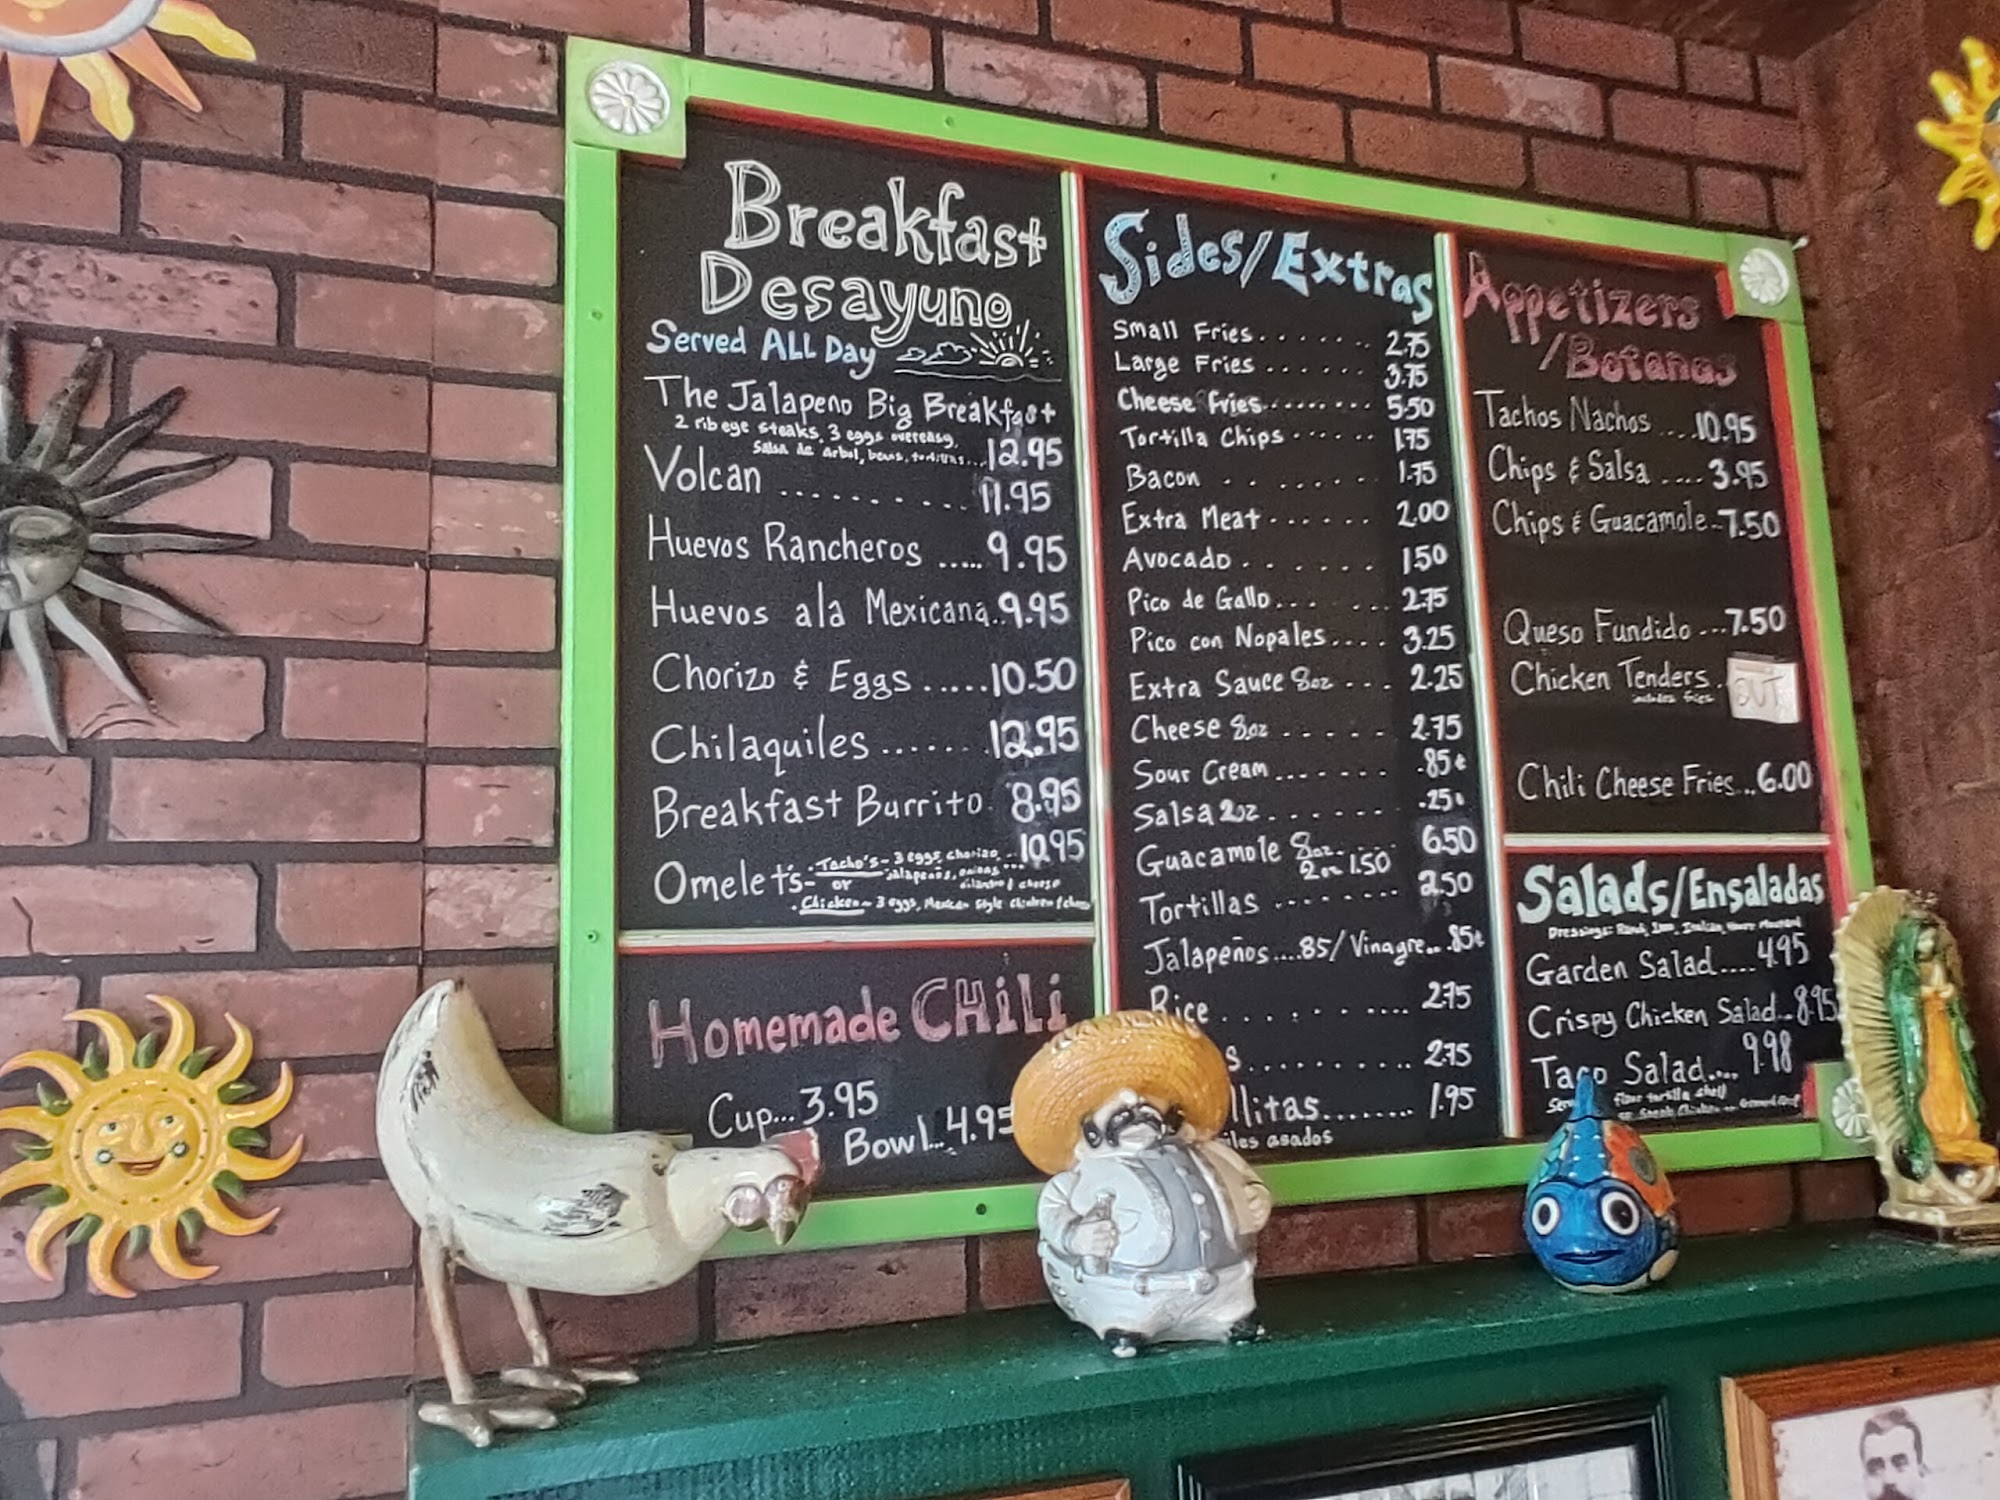 Breakfast
Desayuno
Served ALL Day
The Jalapeno Big Breakfast
2 ribeye steaks, 3 eggs overeasy,
Salsa de arbol, beans, tortillas...12.95
Volcan .......... 11.95
Huevos Rancheros ..... 9.95
Huevos ala Mexicana..9.95
Chorizo & Eggs ......10.50
Chilaquiles .......12.95
Breakfast Burrito. 8.95
Omelets- . Tacho's - 3 eggs, chorizo, ...10.95
jalapeños, onions
or
cilantro & cheese
. Chicken - 3 eggs, Mexican Style Chicken &
Homemade CHiLi
Cup...3.95
Bowl...4.95
Sides/Extras
Small Fries....... 2.75
Large Fries ...... 3.75
Cheese fries......... 5.50
Tortilla Chips ...... 1.75
Bacon . . ...... 1.75
Extra Meat ...... 2.00
Avocado . . . . . . 1.50
Pico de Gallo... ... 2.75
Pico con Nopales.... 3.25
Extra Sauce 8oz ... 2.25
Cheese 8oz ...... 2.75
Sour Cream....... .85¢
Salsa 2oz....... .25¢
Guacamole 8oz...... 6.50
2oz 1.50
Tortillas ........ 2.50
Jalapeños....85/Vinagre...85¢
Rice . . . . . .... 2.75
s........... 2.75
llitas........ 1.95
iles asados
Appetizers
/Botanas
Tachos Nachos ....10.95
Chips & Salsa .... 3.95
Chips & Guacamole..7.50
Queso Fundido ...7.50
Chicken Tenders . OUT
includes fries
Chili Cheese Fries...6.00
Salads/Ensaladas
Dressings: Ranch, Italian, Honey Mustard
Garden Salad....4.95
Crispy Chicken Salad..8.95
Taco Salad.... 9.98
flour tortilla shell
Steak, Chicken or Ground Beef